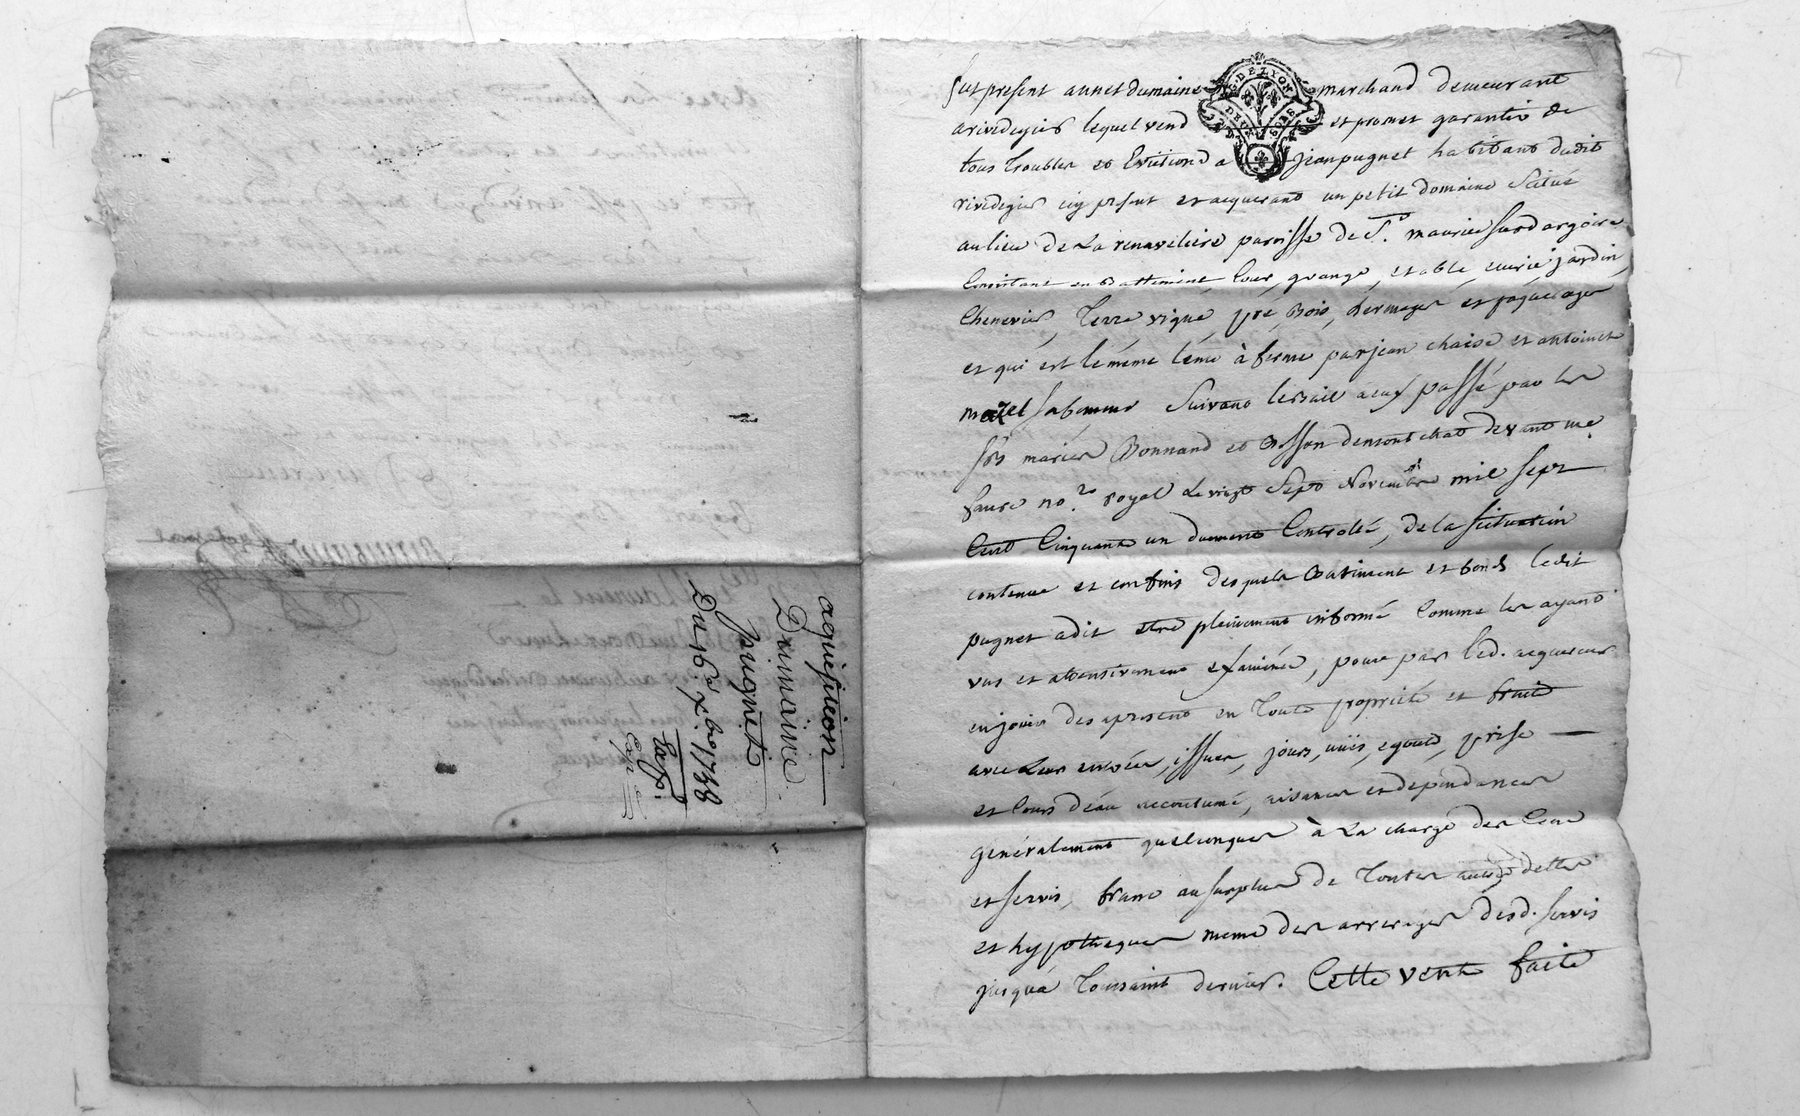 aquisition
Dumaine
pugnet
Du 16 xbre 1758
Exp.
fut present annet dumaine marchand demeurant
a rivedegier lequel vend et promet garantir de
tous troubles et Evictions a jean pugnet habitant dudit
rivedegier icy present et acquerant un petit domaine Scitué
au lieu de La renaveliere paroisse de St. maurice sur dargoire
Consistant en Battiment, Cour, grange, etable, ecurie jardin,
Chenevier, Terre vigne, pré, Bois, hermages et paquerages
et qui est le même tenu à ferme par jean chaise et antoinet
mazel Suivant le bail a eux passé par les
Srs mariés Bonnand et devant me
faure nore. royal Le vingt Sept Novembre mil sept
Cent Cinquante un duement Controllé, de la Scituation
contenue et confins desquels Batiment et fonds ledit
pugnet a dit etre pleinement informé Comme les ayant
vus et attentivement examinés, pour par led. acquereur
en jouir des apresent en Toute propriété et fruits
avec Leurs entrées, issues, jours, vuës, egouts, prise
et Cours deau accoutumé, aisances et dependances
généralement quelconques à La charge des Cens
et servis, franc au surplus de Toutes autres dettes
et hypotheques meme des arrerages desd. servis
jusqu'a Toussaint dernier. Cette vente faite
G. DE LYON
DEUX SOLS